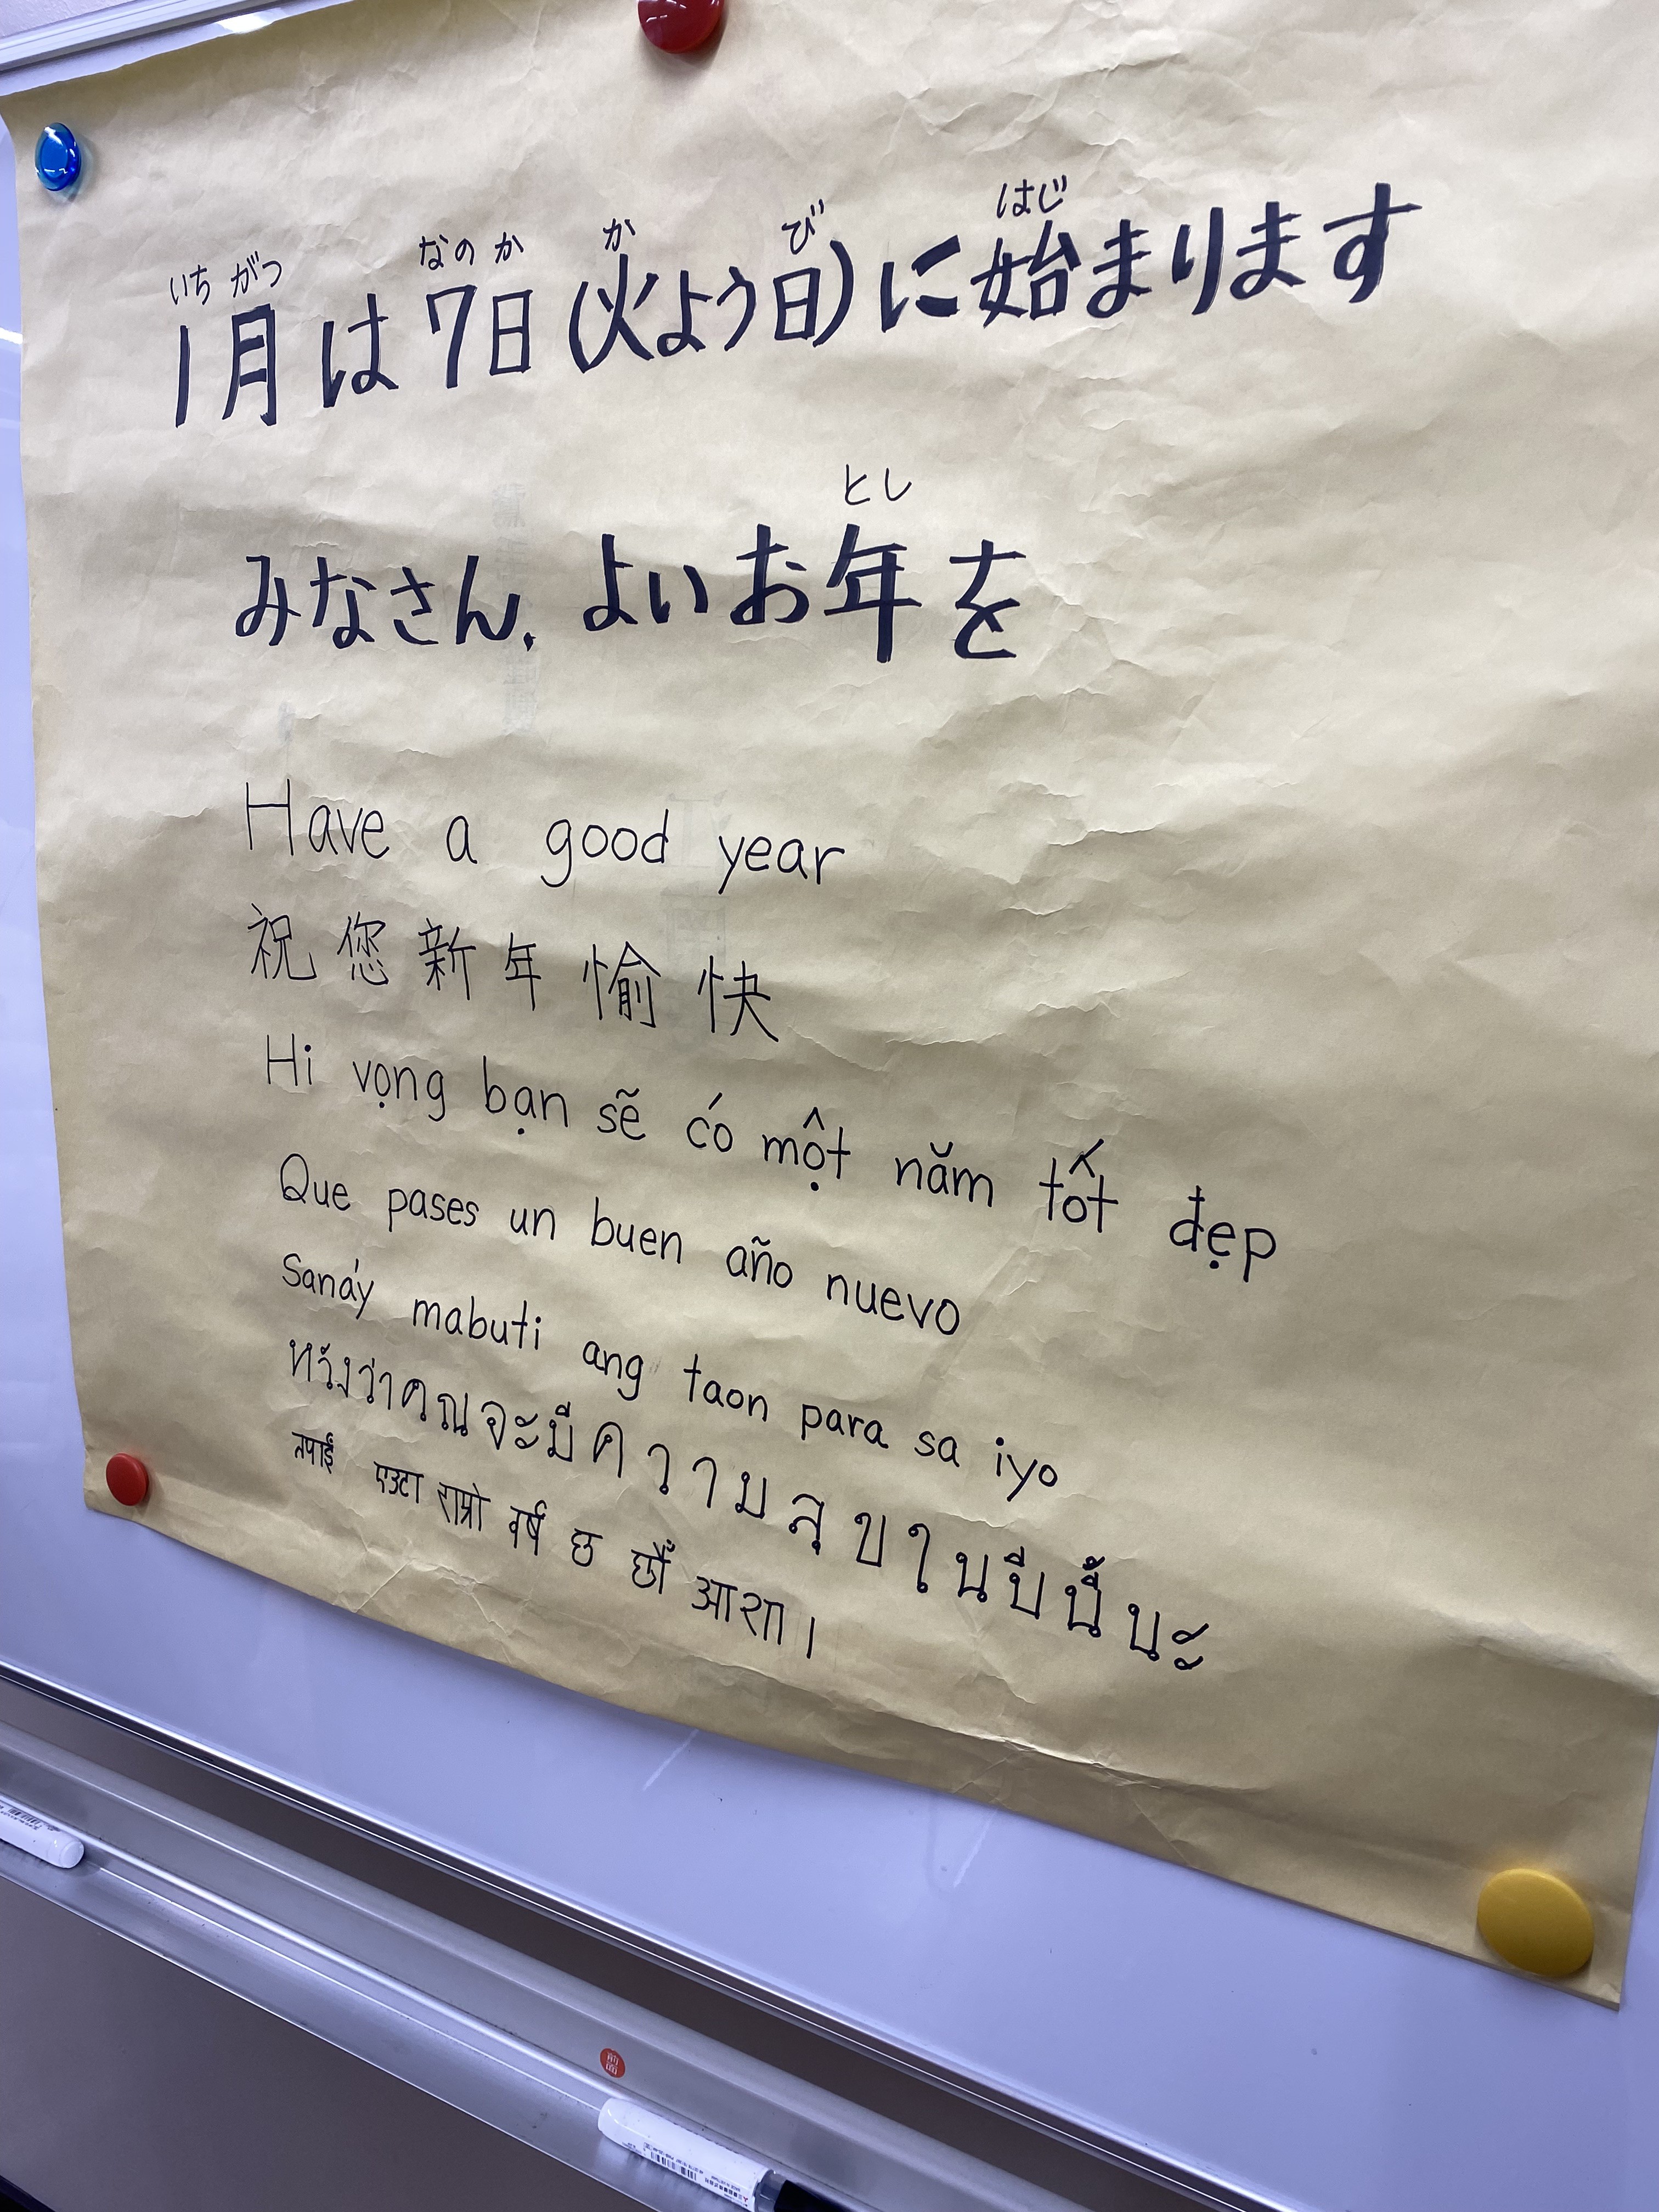 いち がつ なの か か び はじ
1月は7日(火よう日)に始まります
とし
みなさん、よいお年を
Have a good year
祝您新年愉快
Hi vọng bạn sẽ có một năm tốt đẹp
Que pases un buen año nuevo
Sanáy mabuti ang taon para sa iyo
หวังว่าคุณจะมีความสุขในปีนี้นะ
तपाईं एउटा राम्रो वर्ष छ छौँ आशा।